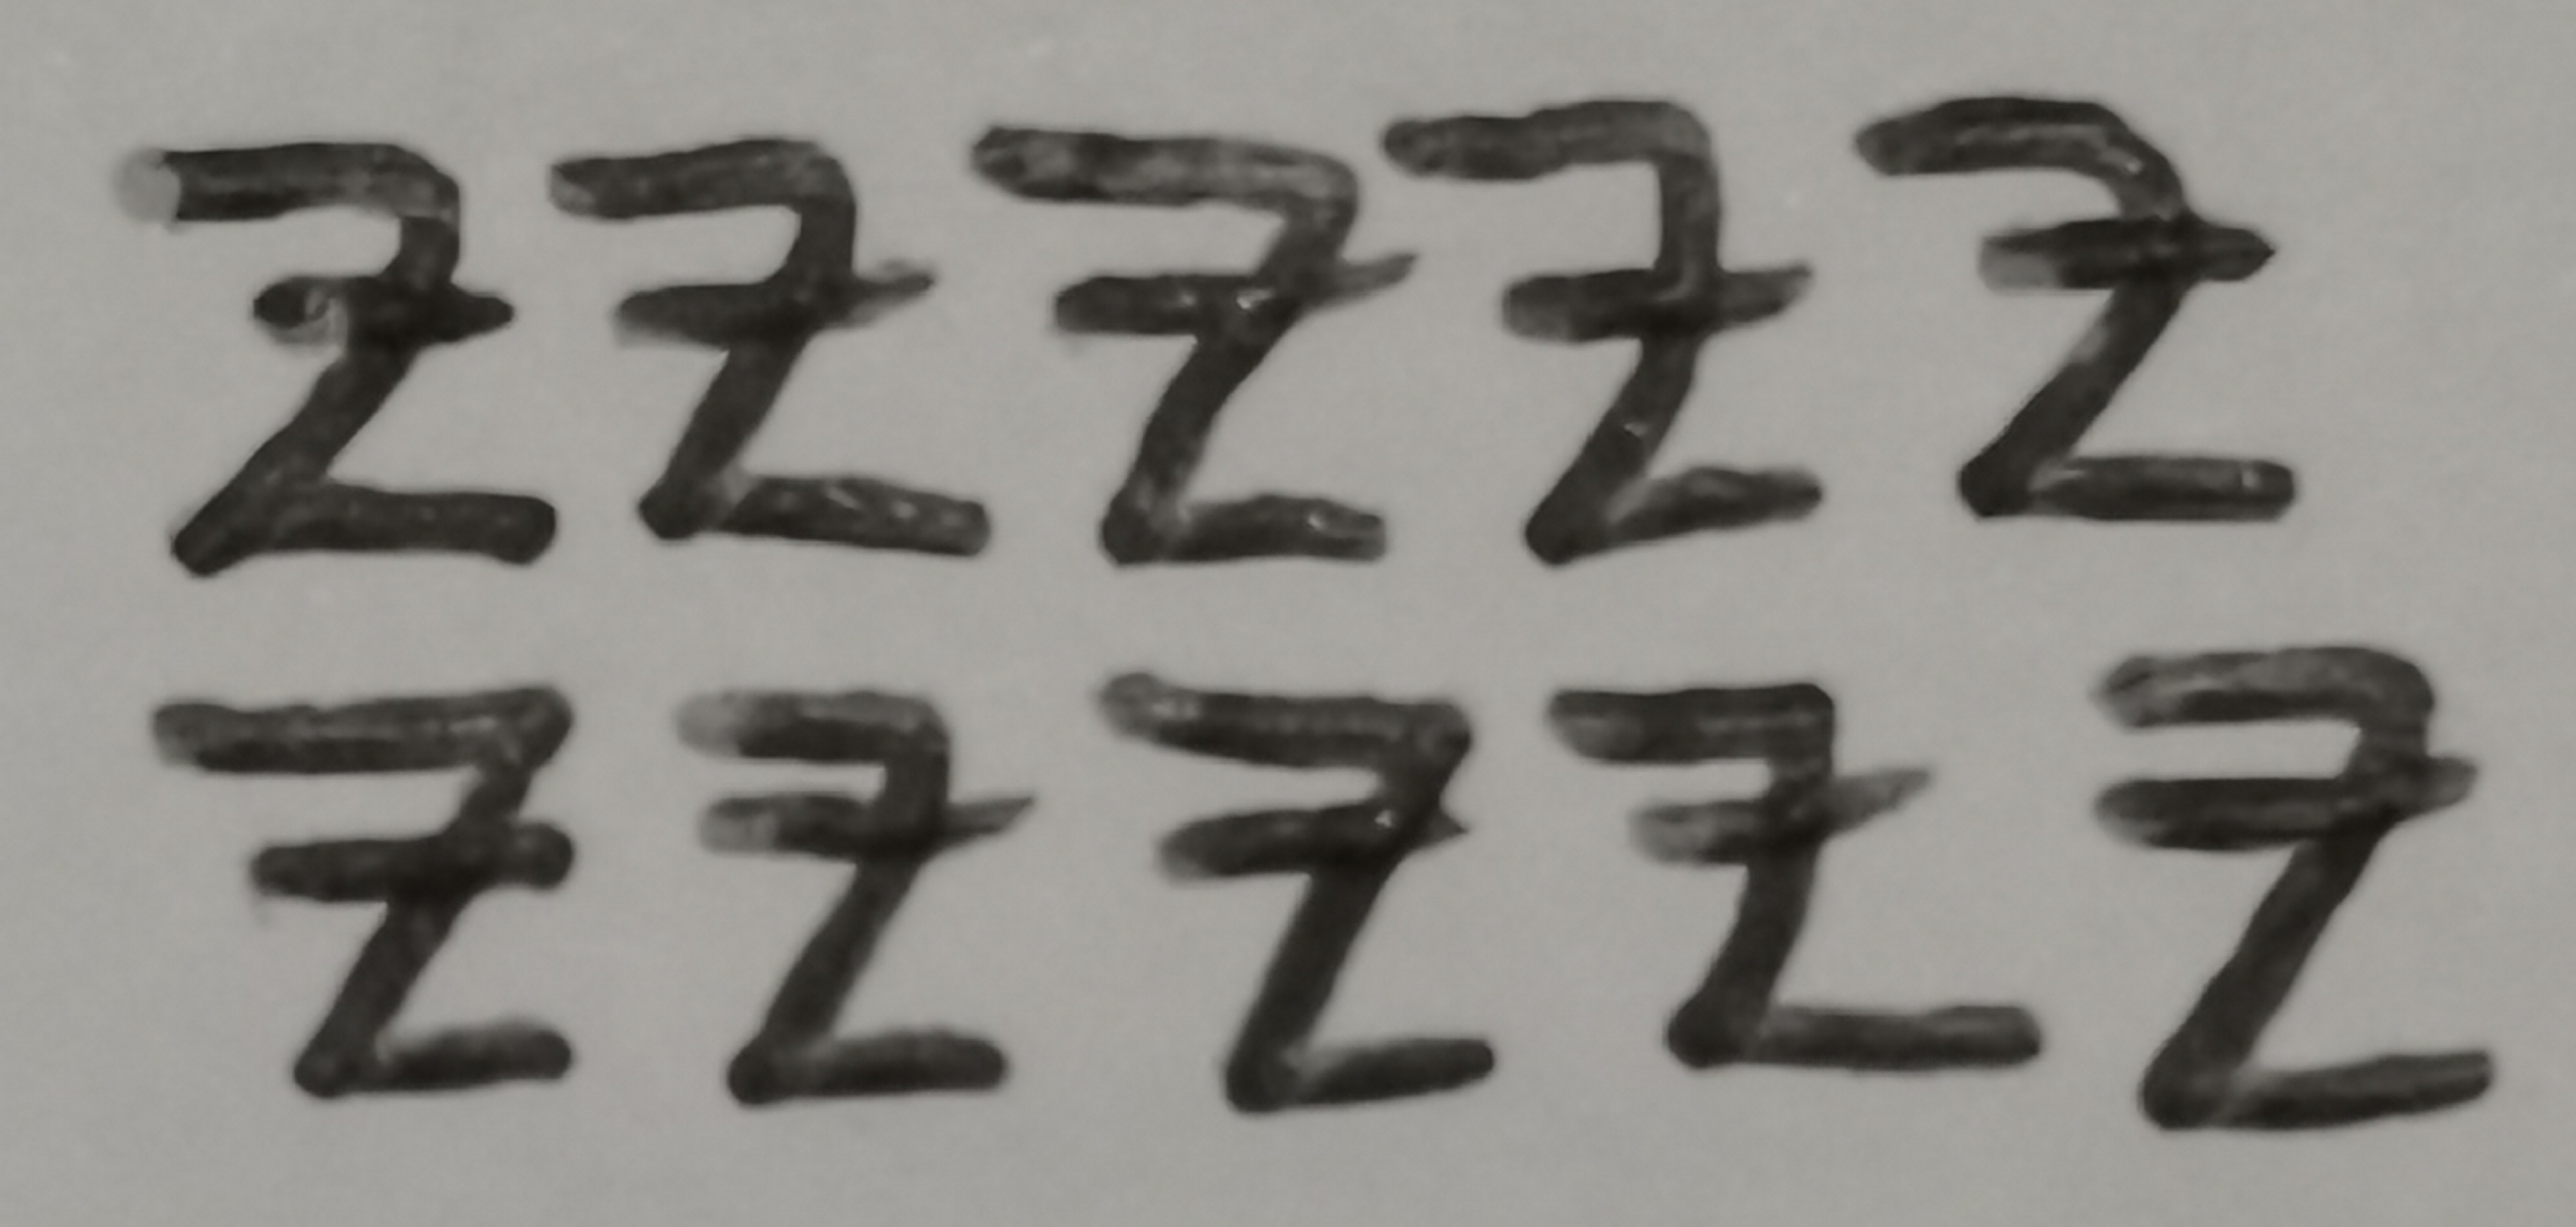 Ƶ Ƶ Ƶ Ƶ Ƶ
Ƶ Ƶ Ƶ Ƶ Ƶ